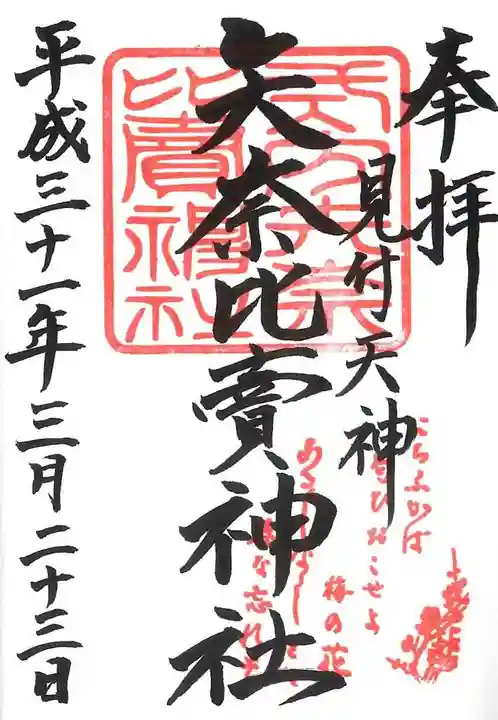 奉拝
見付天神
矢奈比賣神社
平成三十一年三月二十三日
式内矢奈
比賣神社
こちふかば
匂ひおこせよ
梅の花
あるじなしとて
春な忘れそ